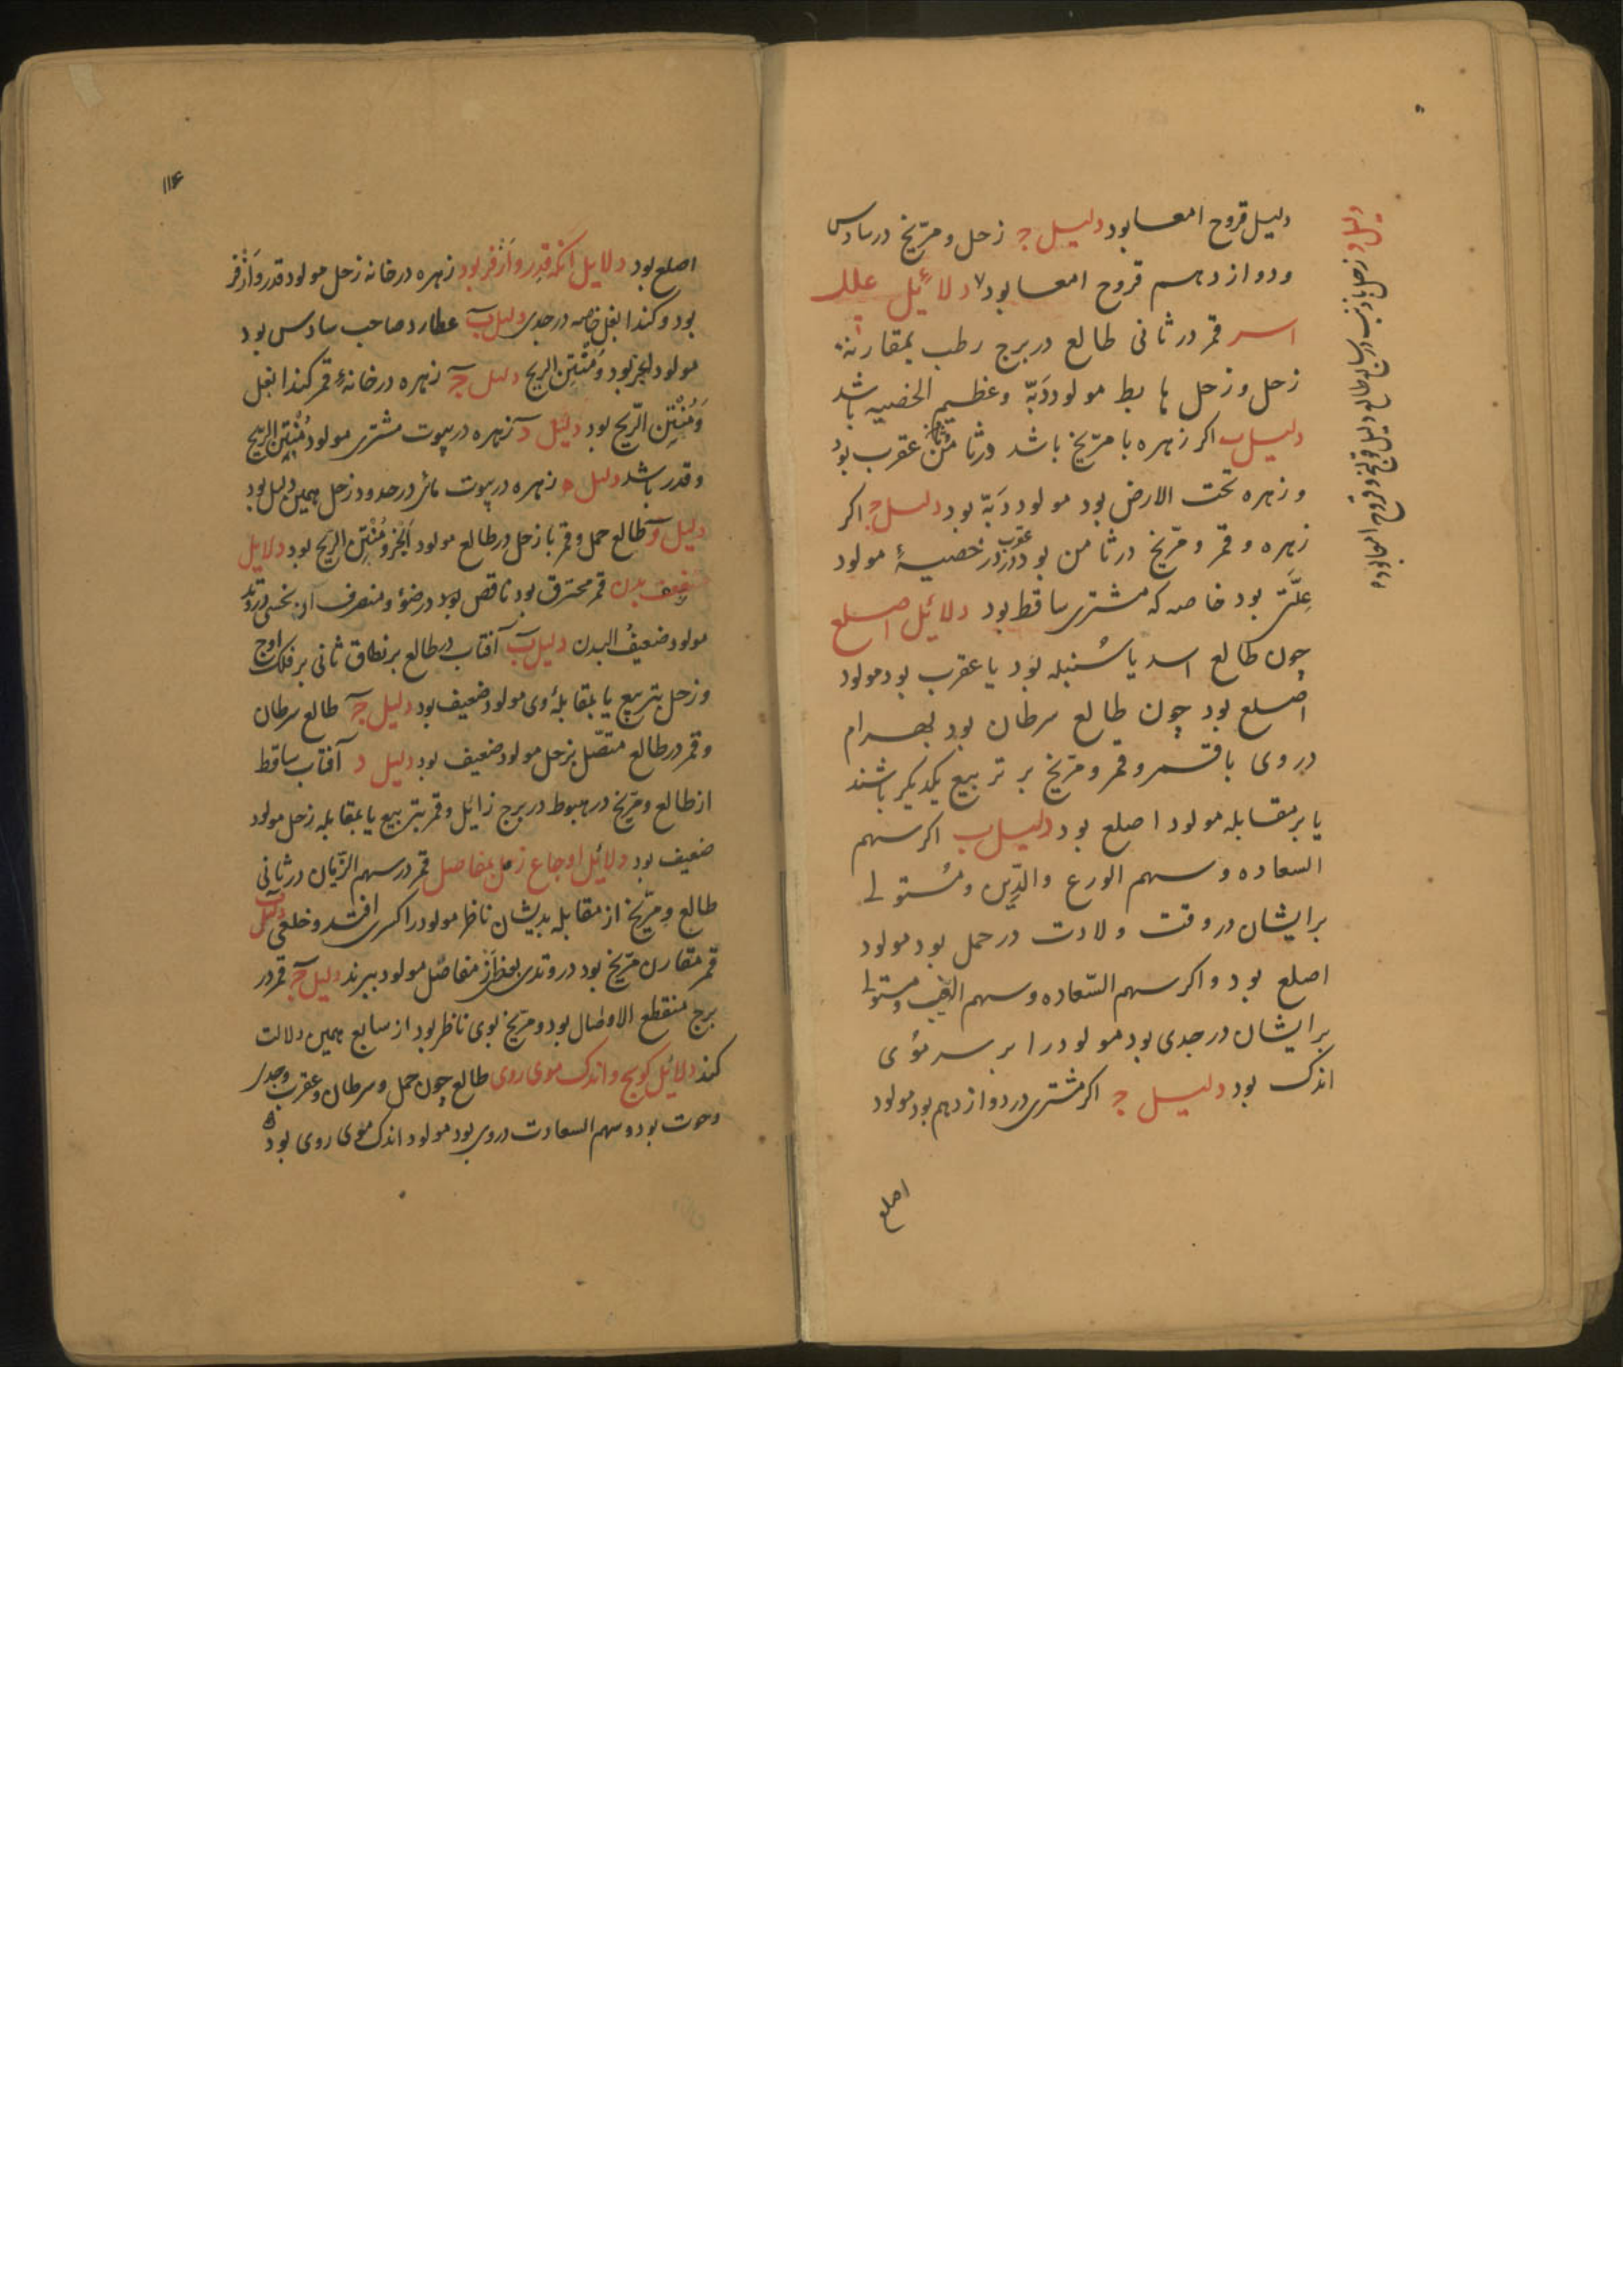 دلیل قروح امعا بود دلیل ج زحل و مریخ در سادس
و دوازدهم قروح امعا بود دلائیل علل
اسر قمر در ثانی طالع در برج رطب بمقارنة
زحل و زحل هابط مولود دَبّه و عظیم الخصیه باشد
دلیل ب اکر زهره با مریخ باشد در ثامن عقرب بود
و زهره تحت الارض بود مولود دَبّه بود دلیل ج اکر
زهره و قمر و مریخ در ثامن بود در خصیهٔ مولود
عِلّتی بود خاصه که مشتری ساقط بود دلائیل اصلع
چون طالع اسد یا سُنبله بود یا عقرب بود مولود
اصلع بود چون طالع سرطان بود بهرام
در وی با قمر و قمر و مریخ بر تربیع یکدیکر باشند
یا بر مقابله مولود اصلع بود دلیل ب اکر سهم
السعاده و سهم الورع والدِّین و مُستولی
بر ایشان در وقت ولادت در حمل بود مولود
اصلع بود و اکر سهم السّعاده و سهم الغیب و مستولی
بر ایشان در جدی بود مولود را بر سر مؤی
اندک بود دلیل ج اکر مشتری در دوازدهم بود مولود
اصلع
دلیل د زحل با ذنب در سابع طالع دلیل قولنج و قروح امعا بود
۱۱۴
اصلع بود دلایل آنکه قذر و اَذفر بود زهره در خانه زحل مولود قذر و اَذفر
بود و کندا بغل خاصه در جدی دلیل ب عطارد صاحب سادس بود
مولود ابخر بود و مُنْتِن الریح دلیل ج زهره در خانهٔ قمر کندا بغل
وَ مُنْتِن الرّیح بود دلیل د زهره در بیوت مشتری مولود مُنْتِن الریح
و قذر باشد دلیل ه زهره در بیوت در حدود زحل همین دلیل بود
دلیل و طالع حمل و قمر با زحل در طالع مولود اَبْخر و مُنْتِن الریح بود دلایل
ضعیف بدن قمر محترق بود ناقص بود در ضوٴ و منصرف از نحسی در وتد
مولود ضعیفُ البدن دلیل ب آفتاب در طالع بر نطاق ثانی بر فلک اوج
و زحل بتربیع یا بمقابلهٔ وی مولود ضعیف بود دلیل ج طالع سرطان
و قمر در طالع متّصل بزحل مولود ضعیف بود دلیل د آفتاب ساقط
از طالع و مریخ در هبوط در برج زائل و قمر بتربیع یا بمقابله زحل مولود
ضعیف بود دلائل اوجاع مفاصل قمر در سهم الزّمان در ثانی
طالع و مریخ از مقابله بدیشان ناظر مولود را کسری افتد و خلعی دلیل ب
قمر مقارن مریخ بود در وتدی بعضی از مفاصل مولود ببرند دلیل ج قمر در
برج منقطع الاوصال بود و مریخ بوی ناظر بود از سابع همین دلالت
کند دلائل کوسج و اندک موی روی طالع چون حمل و سرطان و عقرب و جدی
و حوت بود و سهم السعادت در وی بود مولود اندک موی روی بود